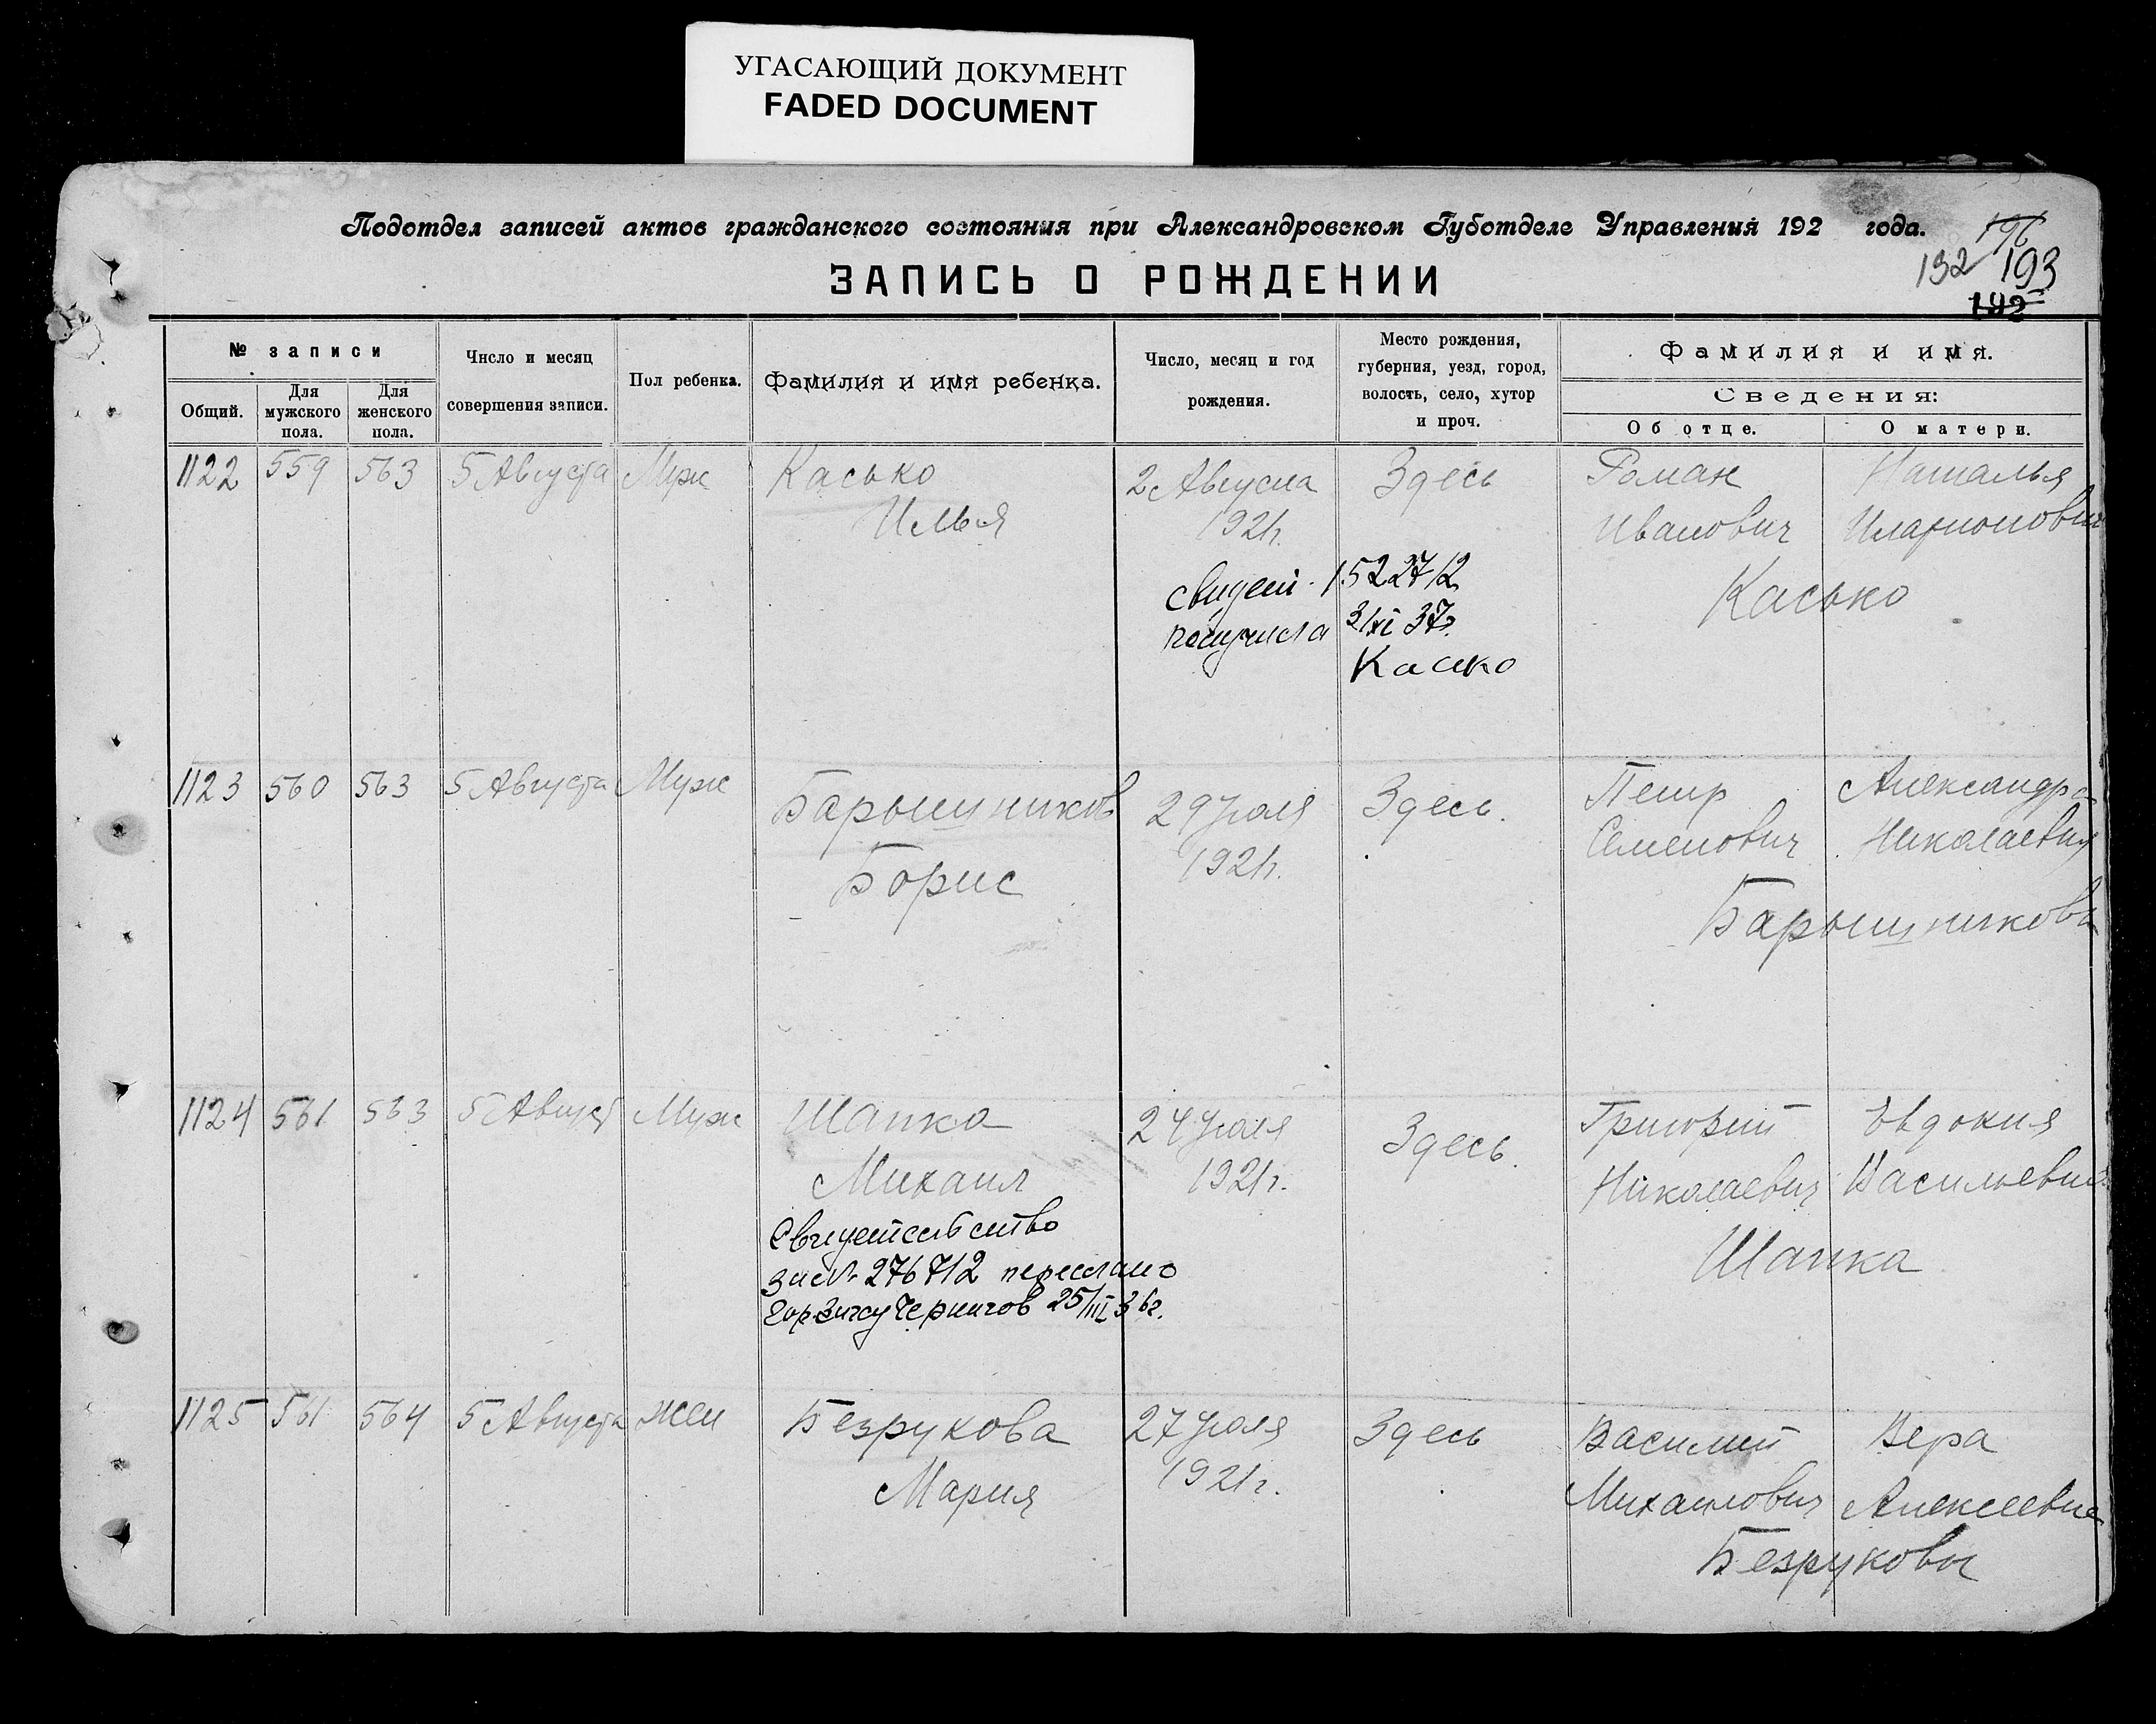 УГАСАЮЩИЙ ДОКУМЕНТ
FADED DOCUMENT
Подотдел записей актов гражданского состояния при Александровском Губотделе Управления 192 года.
196
132 193
192
ЗАПИСЬ О РОЖДЕНИИ
№ записи
Общий.
Для мужского пола.
Для женского пола.
Число и месяц совершения записи.
Пол ребенка.
Фамилия и имя ребенка.
Число, месяц и год рождения.
Место рождения, губерния, уезд, город, волость, село, хутор и проч.
Фамилия и имя.
Сведения:
Об отце.
О матери.
1122 559 563 5 Августа Муж Касько 2 Августа Здесь Роман Наталья
Илья 1921г. Иванович Иларионовн
Касько
свидет. 15227/2
получила 3/XI 37г.
Касько
1123 560 563 5 Августа Муж Барышников 29 Юоля Здесь. Петр Александра
Борис 1921г. Семенович Николаевна
Барышниковы
1124 561 563 5 Август Муж Шапка 24 Юоля Здесь. Григорий Евдокия
Михаил 1921г. Николаевич Васильевна
Шапка
Свидетельство
за № 276712 переслано
Чернигов 25/III 36г.
1125 561 564 5 Августа Жен Безрукова 27 Юоля Здесь Василий Вера
Мария 1921г. Михаилович Алексеевна
Безруковы